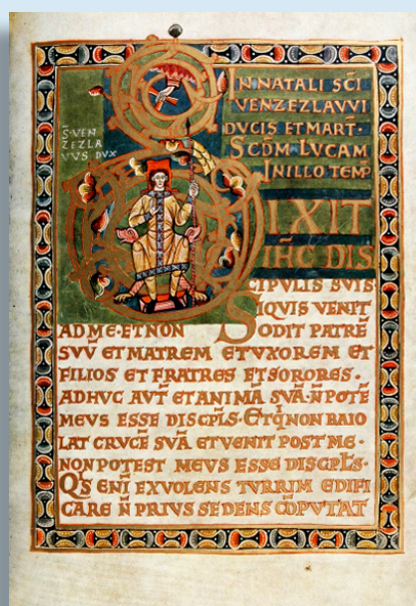 IN NATALI SCI
VENZEZLAVVI
DUCIS ET MART·
SCDM LUCAM
IN ILLO TEMP
S· VEN
ZEZLA
VVS DUX
DIXIT
IHC DIS
CIPULIS SUIS·
SIQUIS VENIT
AD ME· ET NON ODIT PATRĒ
SVV̄ ET MATREM ET VXOREM ET
FILIOS ET FRATRES ET SORORES·
ADHUC AVT̄ ET ANIMĀ SVĀ· N̄ POTĒ
MEVS ESSE DISCPLS· ET Q̇ NON BAIO
LAT CRVCĒ SVĀ ET VENIT POST ME·
NON POTEST MEVS ESSE DISCPLS·
QS ENĪ EX VOLENS TVRRIM EDIFI
CARE N̄ PRIVS SEDENS CŌPVTAT